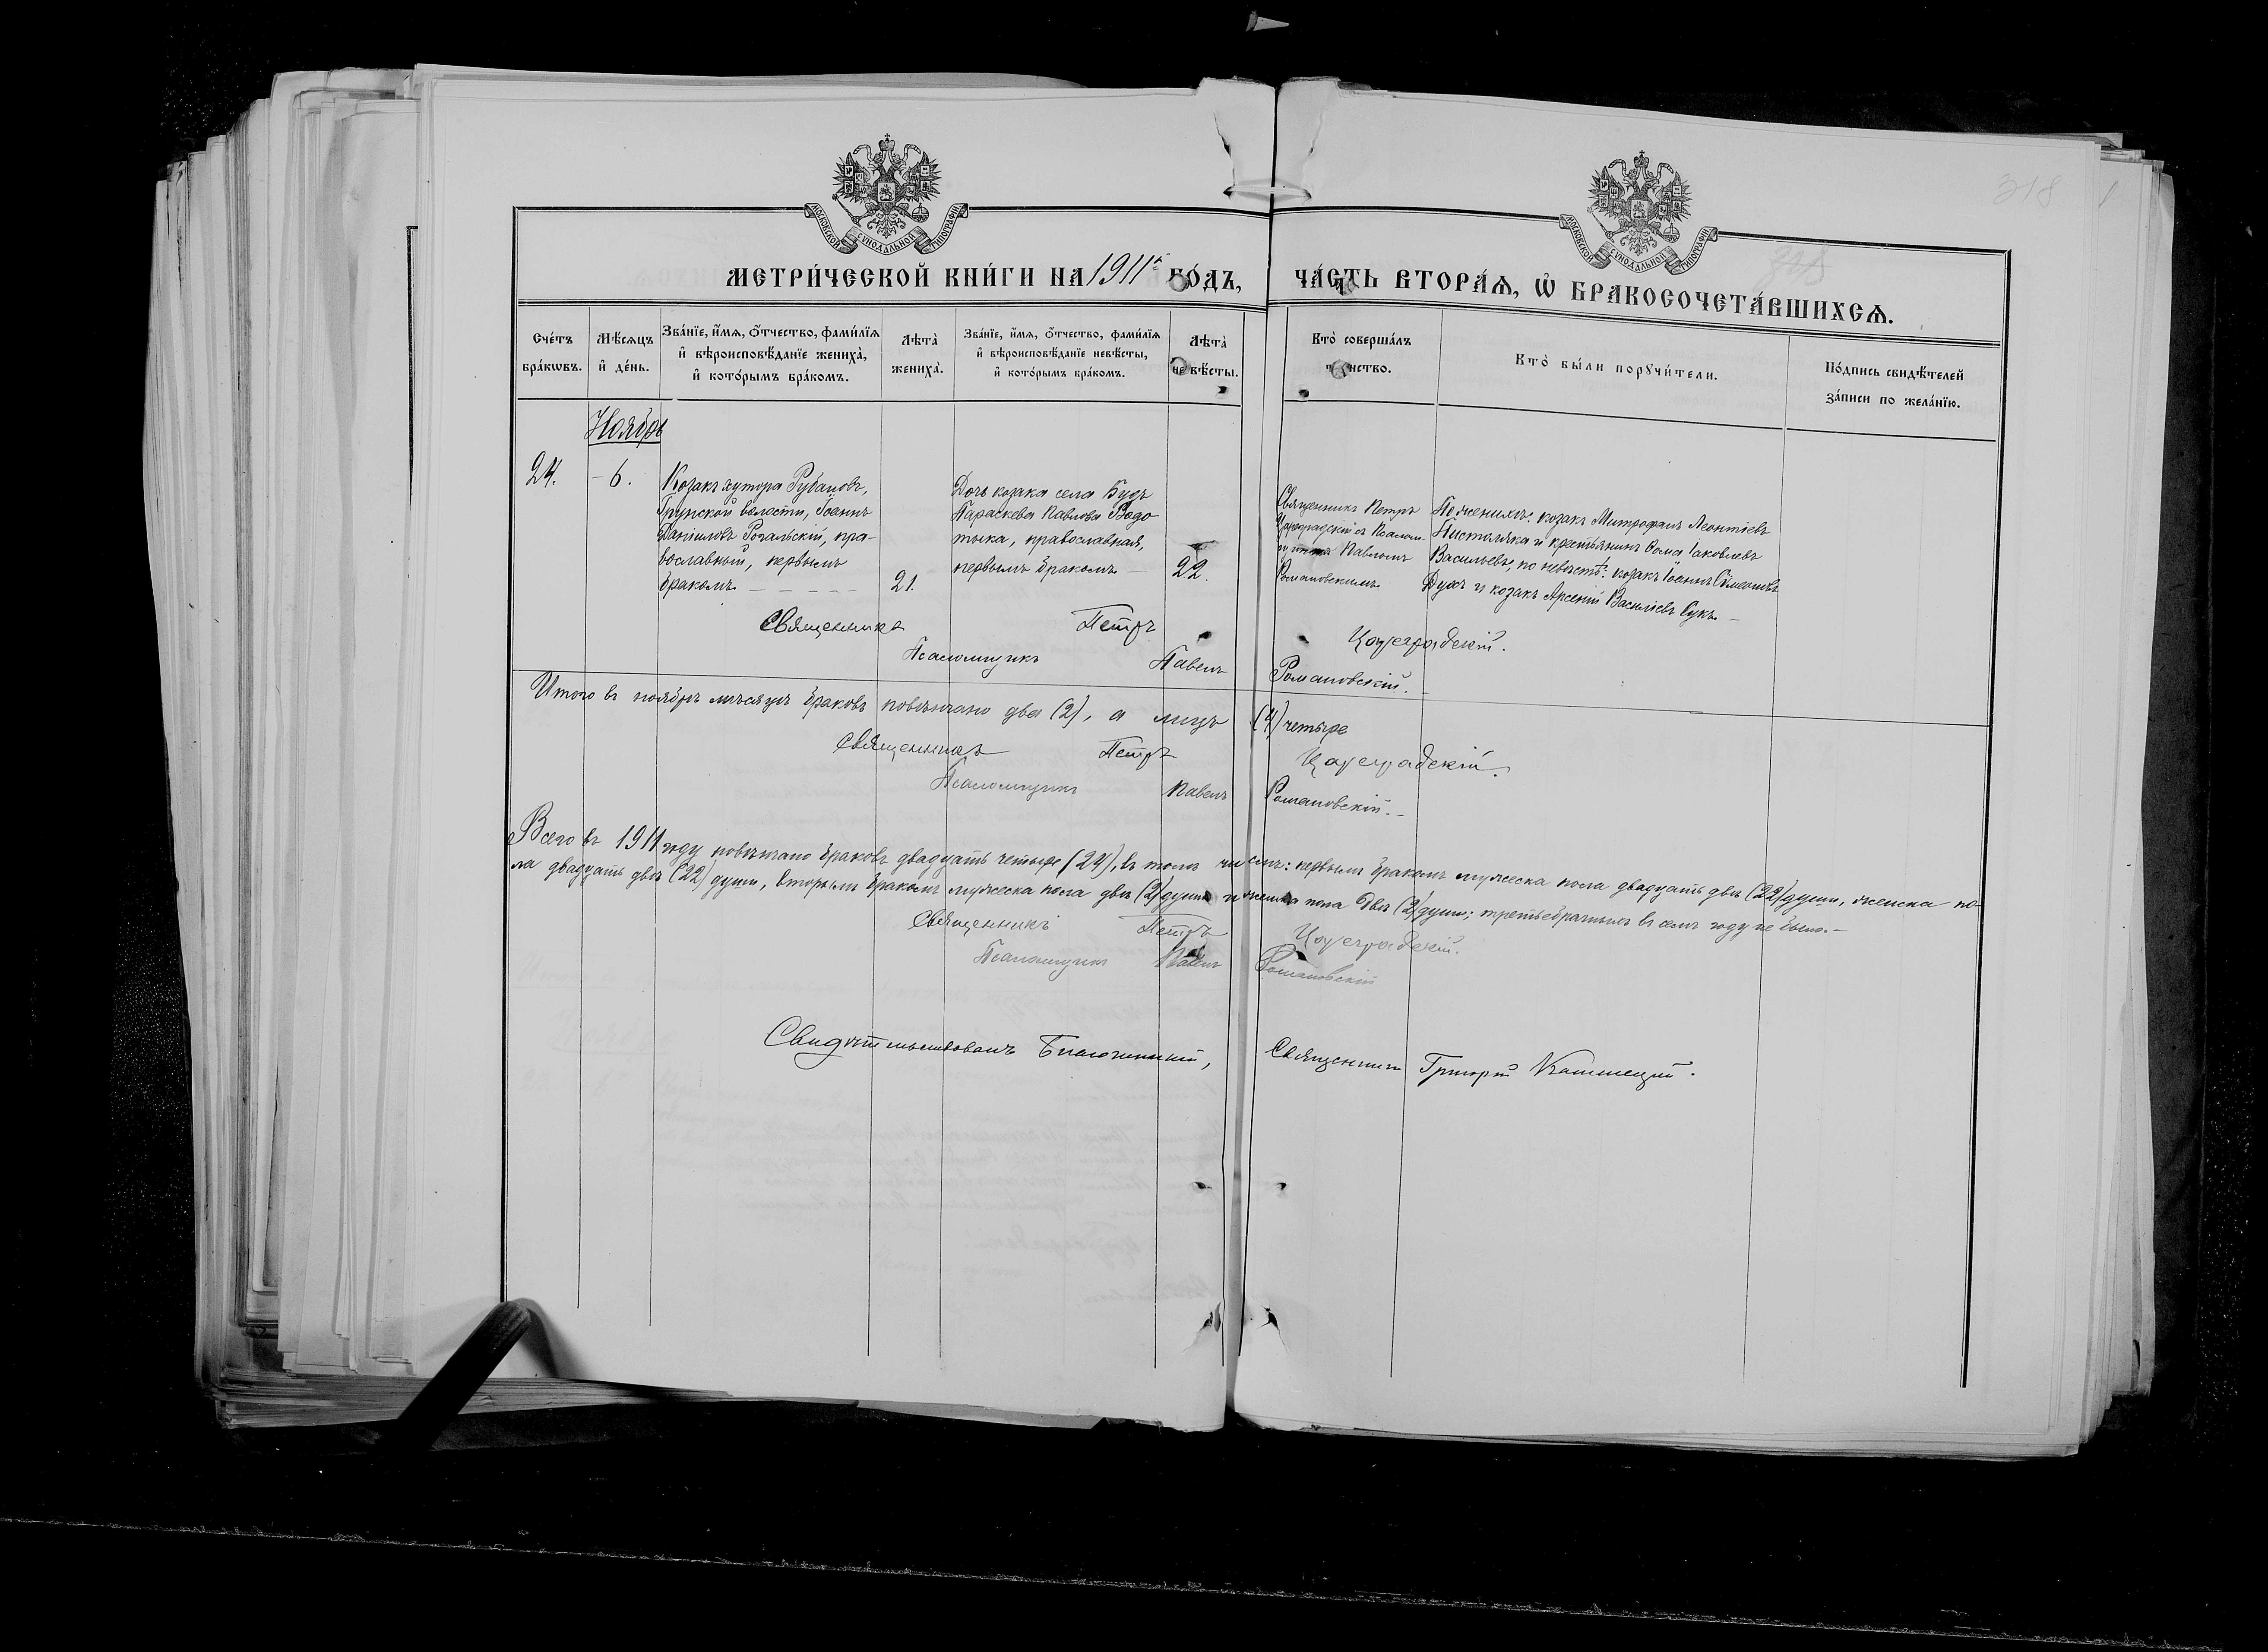 МОСКОВСКОЙ СѴНОДАЛЬНОЙ ТИПОГРАФІИ
МОСКОВСКОЙ СѴНОДАЛЬНОЙ ТИПОГРАФІИ
318
МЕТРИ́ЧЕСКОЙ КНИ́ГИ НА 1911й ГО́ДЪ,
ЧА́СТЬ ВТОРА́Ѧ, Ѡ҆ БРАКОСОЧЕТА́ВШИХСѦ.
Сче́тъ бра́кѡвъ.
Мѣ́сѧцъ и҆ де́нь.
Зва́нїе, и҆́мѧ, ѻ҆́тчество, фами́лїѧ и҆ вѣроисповѣ́данїе жениха̀, и҆ кото́рымъ бра́комъ.
Лѣта̀ жениха̀.
Зва́нїе, и҆́мѧ, ѻ҆́тчество, фами́лїѧ и҆ вѣроисповѣ́данїе невѣ́сты, и҆ кото́рымъ бра́комъ.
Лѣта̀ невѣ́сты.
Кто̀ соверша́лъ та́инство.
Кто̀ бы́ли порꙋчи́тели.
По́дпись свидѣ́телей за́писи по жела́нїю.
Ноябрь
24.
- 6.
Козакъ хутора Рубановъ,
Грунской волости, Іоаннъ
Даніиловъ Рогальскій, пра-
вославный, первымъ
бракомъ - - - - -
21.
Дочь козака села Будъ
Параскева Павлова Водо
тыка, православная,
первымъ бракомъ -
22.
Священникъ Петръ
Цареградскій съ Псалом-
Павломъ
Романовскимъ
По женихѣ: козакъ Митрофанъ Леонтіевъ
и крестьянинъ Ѳома Іаковлевъ
Васильевъ, по невѣстѣ: козакъ Іоаннъ Симеоновъ
Духъ и козакъ Арсеній Василіевъ Сукъ. -
Священникъ Петръ Цареградскій.
Псаломщикъ Павелъ Романовскій.
Итого въ ноябрѣ мѣсяцѣ браковъ повѣнчано два (2), а лицъ (4) четыре
Священникъ Петръ Цареградскій.
Псаломщикъ Павелъ Романовскій. -
Всего въ 1911 году повѣнчано браковъ двадцать четыре (24), въ томъ числѣ: первымъ бракомъ мужеска пола двадцать двѣ (22) души, женска по-
ла двадцать двѣ (22) души, вторымъ бракомъ мужеска пола двѣ (2) души и женска пола двѣ (2) души; третьебрачныхъ въ семъ году не было. -
Священникъ Петръ Цареградскій.
Псаломщикъ Павелъ Романовскій
Свидѣтельствовалъ Благочинный, Священникъ Григорій